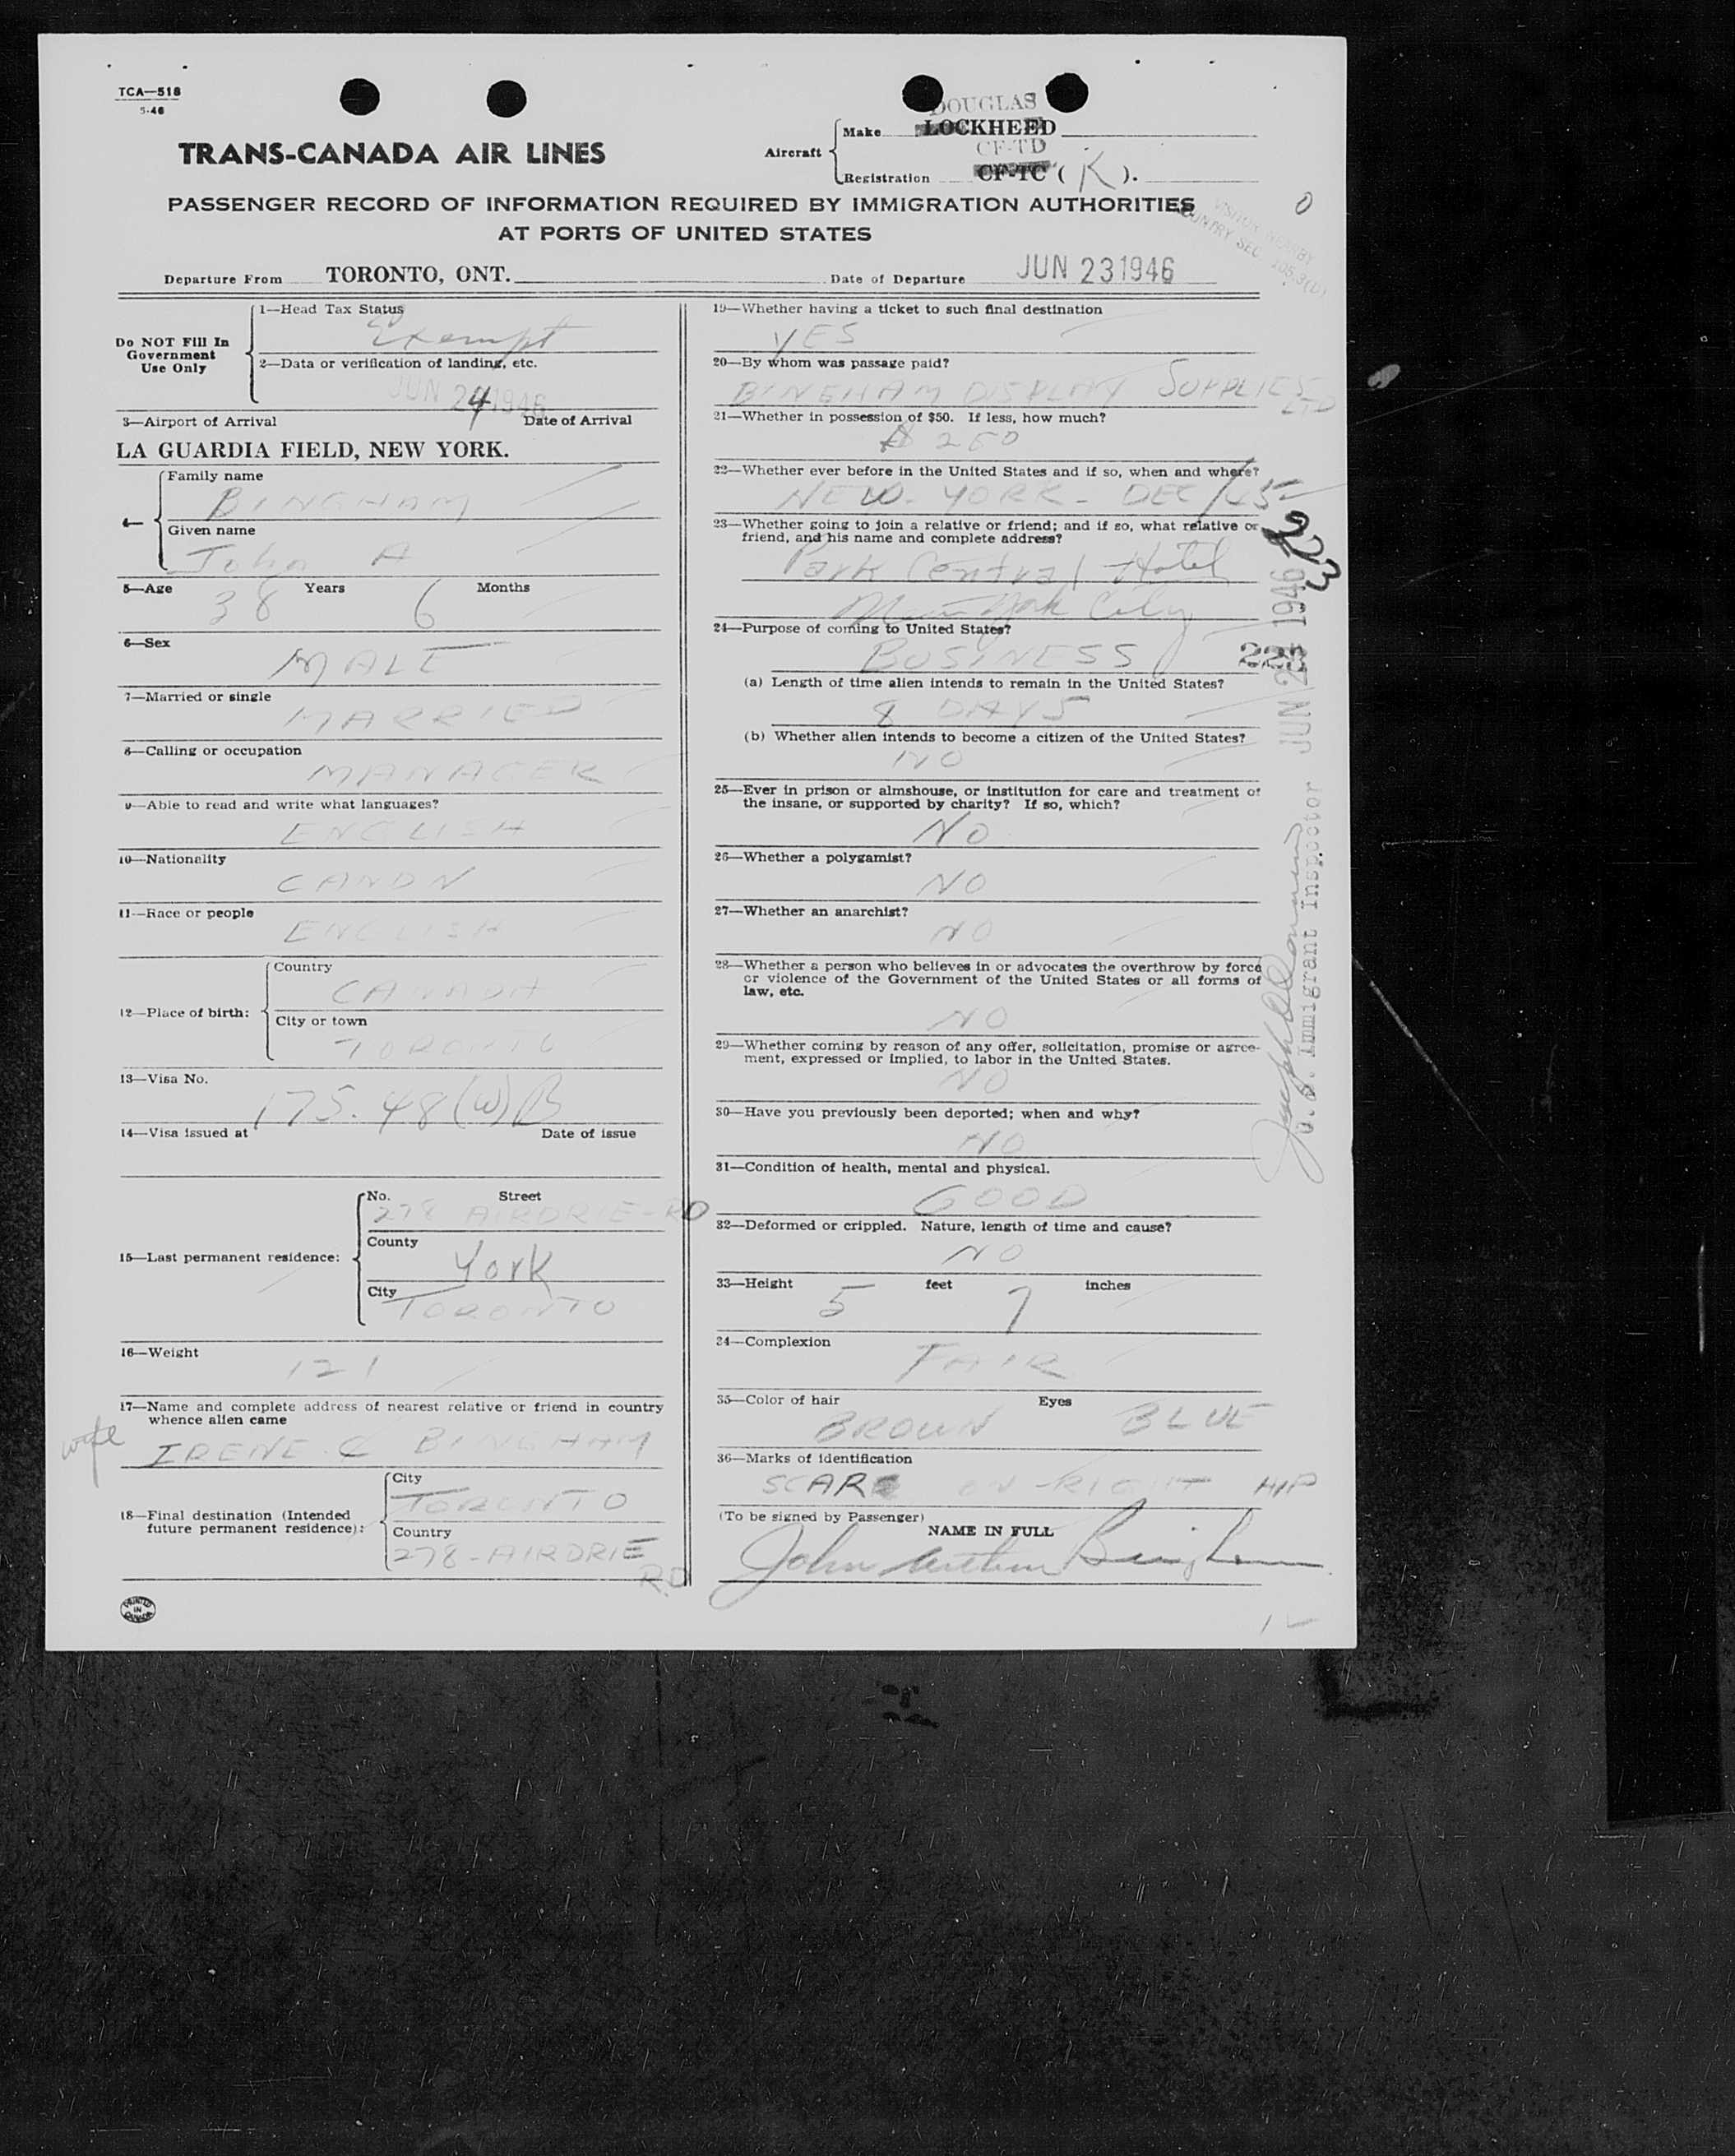 TCA—518
5-46
DOUGLAS
Make LOCKHEED
TRANS-CANADA AIR LINES
Aircraft
CF-TD
Registration CF-TC ( K ).
PASSENGER RECORD OF INFORMATION REQUIRED BY IMMIGRATION AUTHORITIES
AT PORTS OF UNITED STATES
Departure From TORONTO, ONT. Date of Departure JUN 23 1946
Do NOT Fill In
Government
Use Only
1—Head Tax Status
Exempt
2—Data or verification of landing, etc.
JUN 24 1946
3—Airport of Arrival Date of Arrival
LA GUARDIA FIELD, NEW YORK.
4—
Family name
BINGHAM
Given name
John A
5—Age 38 Years 6 Months
6—Sex
MALE
7—Married or single
MARRIED
8—Calling or occupation
MANAGER
9—Able to read and write what languages?
ENGLISH
10—Nationality
CANDN
11—Race or people
ENGLISH
12—Place of birth:
Country
CANADA
City or town
TORONTO
13—Visa No.
175.48(W)B
14—Visa issued at Date of issue
15—Last permanent residence:
No. Street
278 AIRDRIE-RD
County
York
City
TORONTO
16—Weight
121
17—Name and complete address of nearest relative or friend in country
whence alien came
wife IRENE C BINGHAM
18—Final destination (Intended
future permanent residence):
City
TORONTO
Country
278-AIRDRIE
RD
PRINTED
IN
CANADA
19—Whether having a ticket to such final destination
YES
20—By whom was passage paid?
BINGHAM DISPLAY SUPPLIES
LTD
21—Whether in possession of $50. If less, how much?
$ 250
22—Whether ever before in the United States and if so, when and where?
NEW-YORK- DEC/45
23—Whether going to join a relative or friend; and if so, what relative or
friend, and his name and complete address?
Park Central Hotel
New York City
24—Purpose of coming to United States?
BUSINESS
(a) Length of time alien intends to remain in the United States?
8 DAYS
(b) Whether alien intends to become a citizen of the United States?
NO
25—Ever in prison or almshouse, or institution for care and treatment of
the insane, or supported by charity? If so, which?
NO
26—Whether a polygamist?
NO
27—Whether an anarchist?
NO
28—Whether a person who believes in or advocates the overthrow by force
or violence of the Government of the United States or all forms of
law, etc.
NO
29—Whether coming by reason of any offer, solicitation, promise or agree-
ment, expressed or implied, to labor in the United States.
NO
30—Have you previously been deported; when and why?
NO
31—Condition of health, mental and physical.
GOOD
32—Deformed or crippled. Nature, length of time and cause?
NO
33—Height 5 feet 7 inches
34—Complexion
FAIR
35—Color of hair Eyes
BROWN BLUE
36—Marks of identification
SCAR ON RIGHT HIP
(To be signed by Passenger)
NAME IN FULL
John Arthur Bingham
U. S. Immigrant Inspector